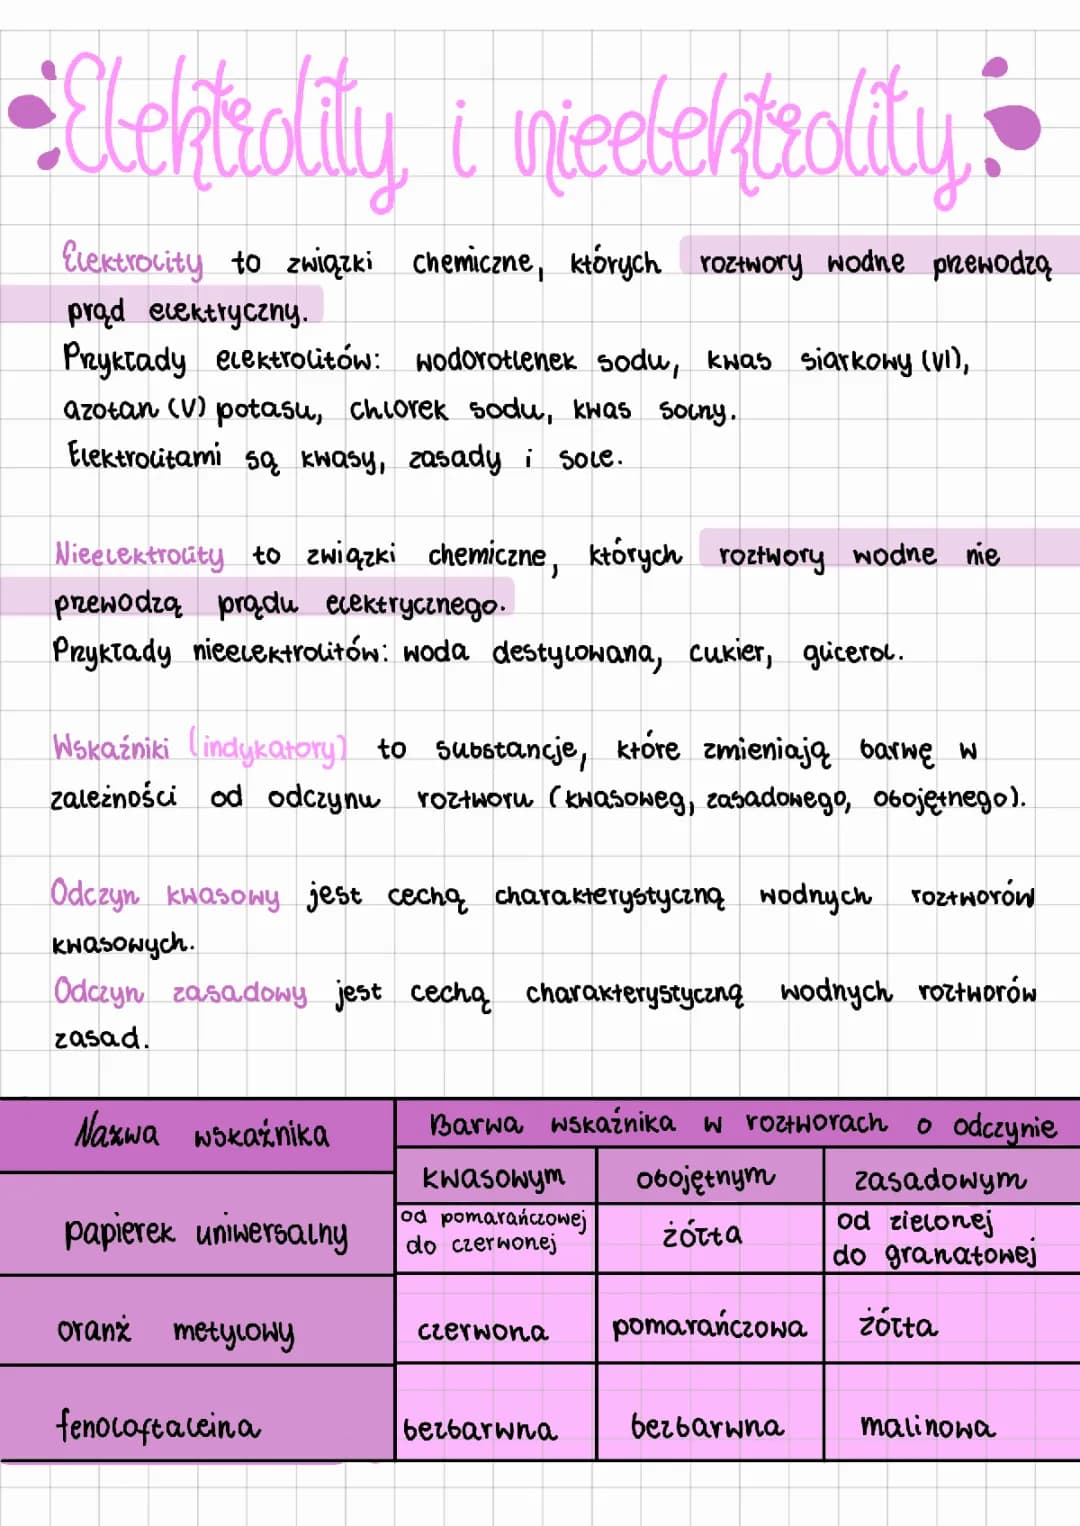 Elektrolity i nieelektrolity
Elektrolity to związki chemiczne, których roztwory wodne przewodzą
prąd elektryczny.
Przykłady elektrolitów: wodorotlenek sodu, kwas siarkowy (VI),
azotan (V) potasu, chlorek sodu, kwas solny.
Elektrolitami są kwasy, zasady i sole.
Nieelektrolity to związki chemiczne, których roztwory wodne nie
przewodzą prądu elektrycznego.
Przykłady nieelektrolitów: woda destylowana, cukier, glicerol.
Wskaźniki (indykatory) to substancje, które zmieniają barwę w
zależności od odczynu roztworu (kwasoweg, zasadowego, obojętnego).
Odczyn kwasowy jest cechą charakterystyczną wodnych roztworów
kwasowych.
Odczyn zasadowy jest cechą charakterystyczną wodnych roztworów
zasad.
Nazwa wskaźnika
Barwa wskaźnika w roztworach o odczynie
kwasowym obojętnym zasadowym
papierek uniwersalny
od pomarańczowej
do czerwonej
żółta
od zielonej
do granatowej
oranż metylowy czerwona pomarańczowa żółta
fenoloftaleina bezbarwna bezbarwna malinowa